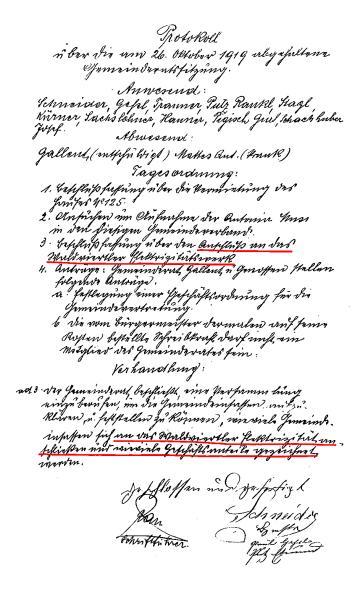 Protokoll
über die am 26. Oktober 1919 abgehaltene
Gemeinderatssitzung.
Anwesend:
Schneider, Gesel, Tranner, Putz, Rankl, Stagl,
Kürner, Sachslehner, Hanner, Pigisch, Schachhuber
Josef.
Abwesend
Gallent, (entschuldigt) Mattes Ant. (krank)
Tagesordnung:
1. Beschlußfassung über die Vermietung des
Hauses No 125.
2. Ansuchen um Aufnahme der Antonia
in den hiesigen Gemeindeverband.
3. Beschlußfassung über den Anschluß an das
Waldviertler Elektrizitätswerk
4. Anträge: Gemeinderat Gallent u. Genossen stellen
folgende Anträge.
a. Festlegung einer Geschäftsordnung für die
Gemeindevertretung.
b die vom Bürgermeister dermalen auf seine
Kosten bestellte Schreibkraft darf nicht ein
Mitglied des Gemeinderates sein.
Verhandlung:
ad 3 Der Gemeinderat beschließt, eine Versammlung
einzuberufen, um die Gemeindeinsassen aufzu-
klären u. feststellen zu können, wieviele Gemeinde-
insassen sich an das Waldviertler Elektrizität an-
schließen und wieviele Geschäftsanteile gezeichnet
werden.
Geschlossen und gefertigt
Schneider
Schriftführer